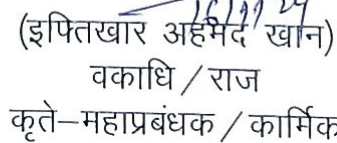 (इफ्तिखार अहमद खान)
वकाधि / राज
कृते–महाप्रबंधक / कार्मिक